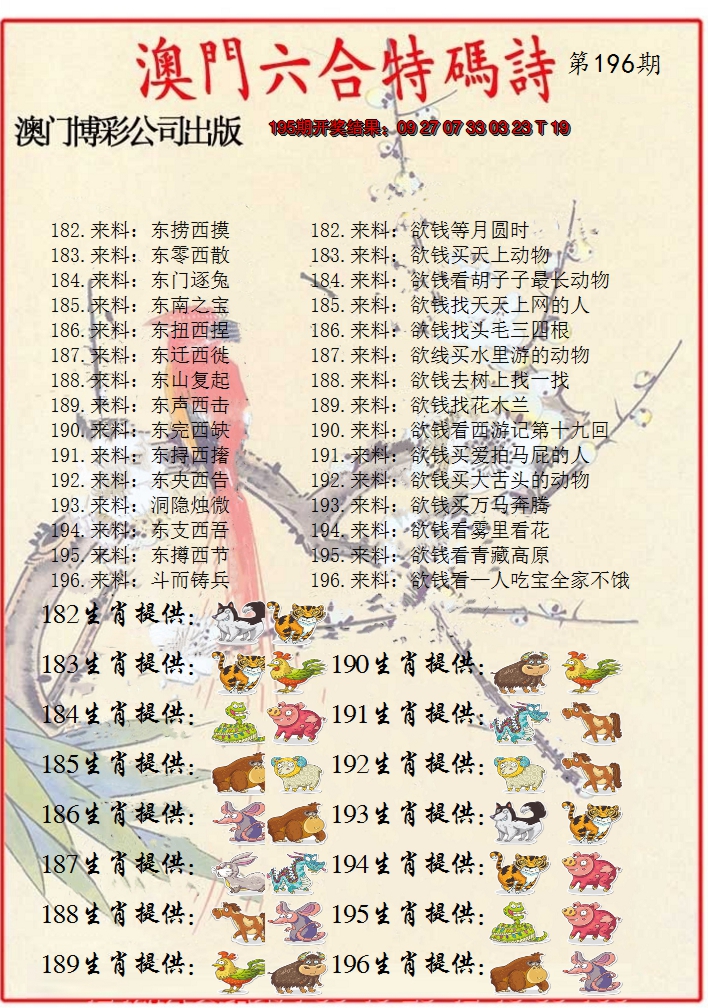 澳門六合特碼詩 第196期
澳门博彩公司出版 195期开奖结果：09 27 07 33 03 23 T 19
182.来料：东捞西摸 182.来料：欲钱等月圆时
183.来料：东零西散 183.来料：欲钱买天上动物
184.来料：东门逐兔 184.来料：欲钱看胡子子最长动物
185.来料：东南之宝 185.来料：欲钱找天天上网的人
186.来料：东扭西捏 186.来料：欲钱找头毛三四根
187.来料：东迁西徙 187.来料：欲线买水里游的动物
188.来料：东山复起 188.来料：欲钱去树上找一找
189.来料：东声西击 189.来料：欲钱找花木兰
190.来料：东完西缺 190.来料：欲钱看西游记第十九回
191.来料：东挦西撦 191.来料：欲钱买爱拍马屁的人
192.来料：东央西告 192.来料：欲钱买大舌头的动物
193.来料：洞隐烛微 193.来料：欲钱买万马奔腾
194.来料：东支西吾 194.来料：欲钱看雾里看花
195.来料：东撙西节 195.来料：欲钱看青藏高原
196.来料：斗而铸兵 196.来料：欲钱看一人吃宝全家不饿
182生肖提供：
183生肖提供： 190生肖提供：
184生肖提供： 191生肖提供：
185生肖提供： 192生肖提供：
186生肖提供： 193生肖提供：
187生肖提供： 194生肖提供：
188生肖提供： 195生肖提供：
189生肖提供： 196生肖提供：